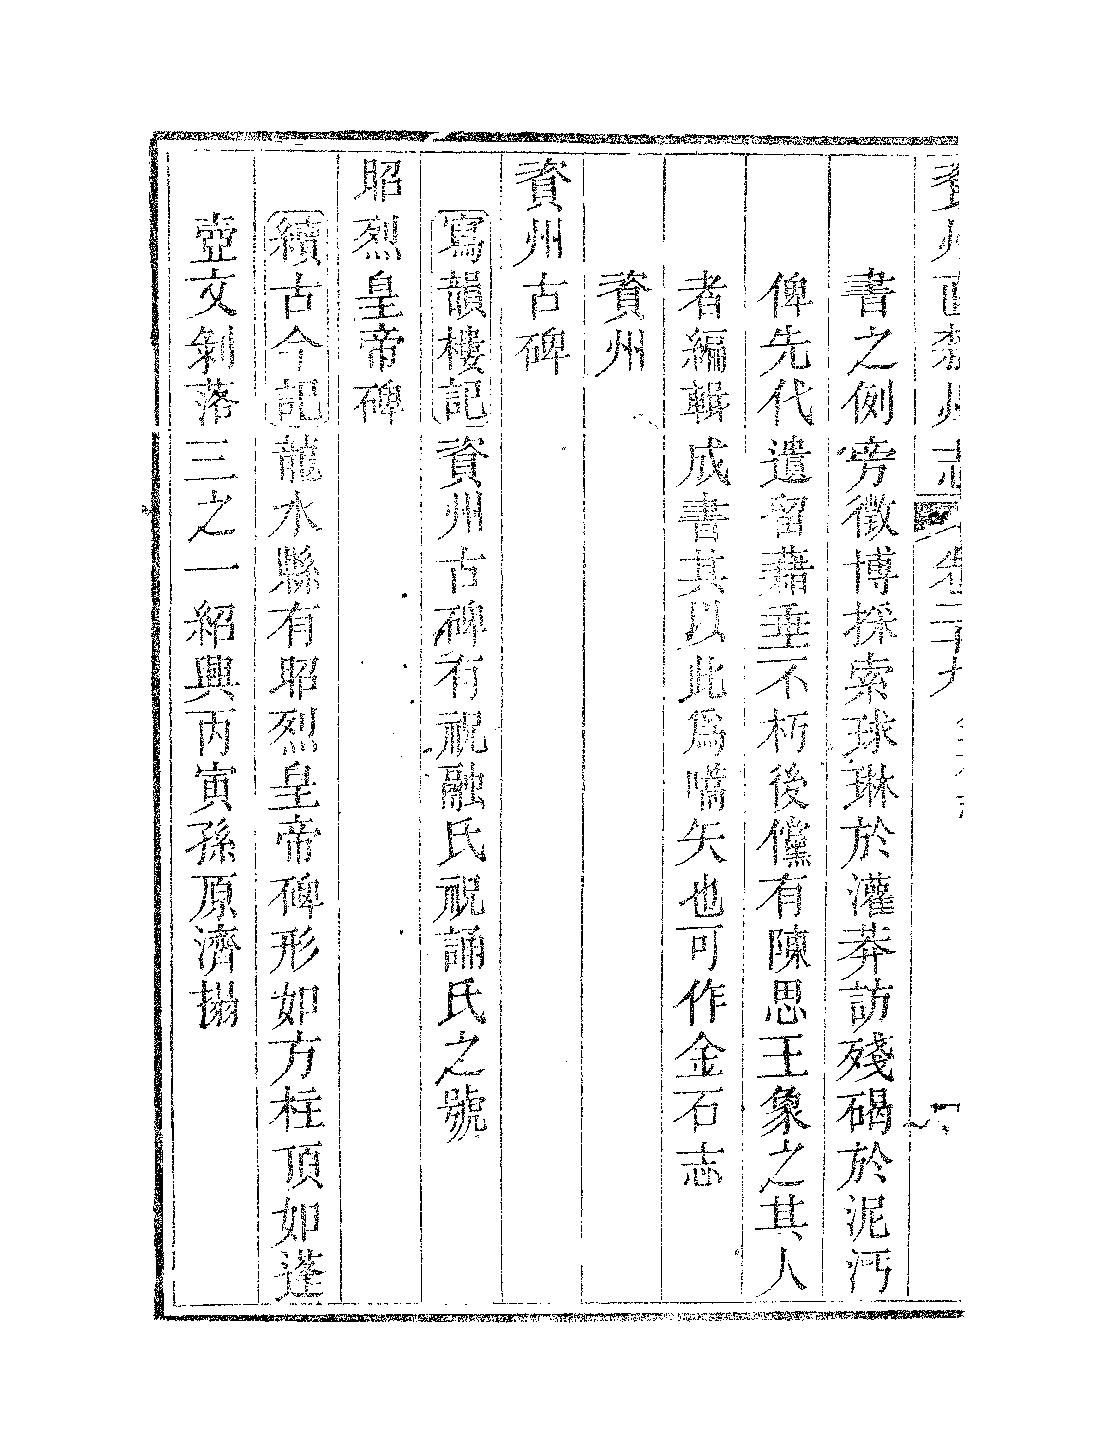 資州直隸州志 卷二十九
書之例旁徵博採索球琳於灌莽訪殘碣於泥沔
俾先代遺留藉垂不朽後儻有陳思王象之其人
者編輯成書其以此為嚆矢也可作金石志
資州
資州古碑
寫韻樓記資州古碑有祝融氏祝誦氏之號
昭烈皇帝碑
續古今記龍水縣有昭烈皇帝碑形如方柱頂如蓬
壺文剝落三之一紹興丙寅孫原濟搨